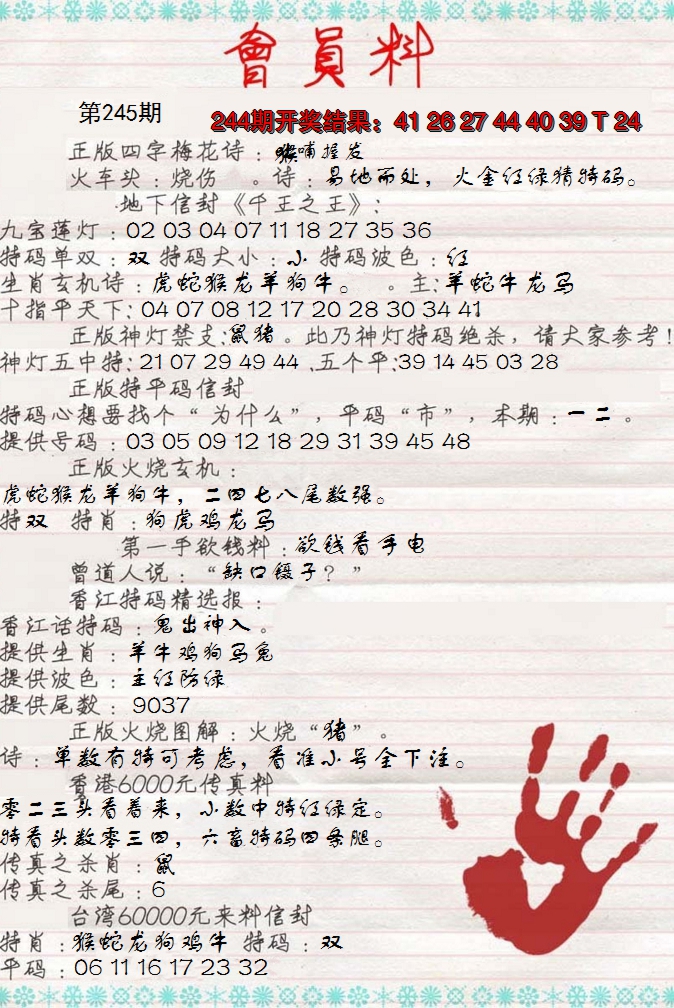 會員料
第245期
244期开奖结果：41 26 27 44 40 39 T 24
正版四字梅花诗：猴哺握发
火车头：烧伤 。诗：易地而处，火金红绿猜特码。
地下信封《千王之王》：
九宝莲灯：02 03 04 07 11 18 27 35 36
特码单双：双 特码大小：小 特码波色：红
生肖玄机诗：虎蛇猴龙羊狗牛。 。主：羊蛇牛龙马
十指平天下：04 07 08 12 17 20 28 30 34 41
正版神灯禁支：鼠猪。此乃神灯特码绝杀，请大家参考！
神灯五中特：21 07 29 49 44 .五个平：39 14 45 03 28
正版特平码信封
特码心想要找个“为什么”，平码“市”，本期：一二。
提供号码：03 05 09 12 18 29 31 39 45 48
正版火烧玄机：
虎蛇猴龙羊狗牛，二四七八尾数强。
特双 特肖：狗虎鸡龙马
第一手欲钱料：欲钱看手电
曾道人说：“缺口镊子？”
香江特码精选报：
香江话特码：鬼出神入。
提供生肖：羊牛鸡狗马兔
提供波色：主红防绿
提供尾数：9037
正版火烧图解：火烧“猪”。
诗：单数有特可考虑，看准小号全下注。
香港6000元传真料
零二三头看着来，小数中特红绿定。
特看头数零三四，六畜特码四条腿。
传真之杀肖：鼠
传真之杀尾：6
台湾60000元来料信封
特肖：猴蛇龙狗鸡牛 特码：双
平码：06 11 16 17 23 32